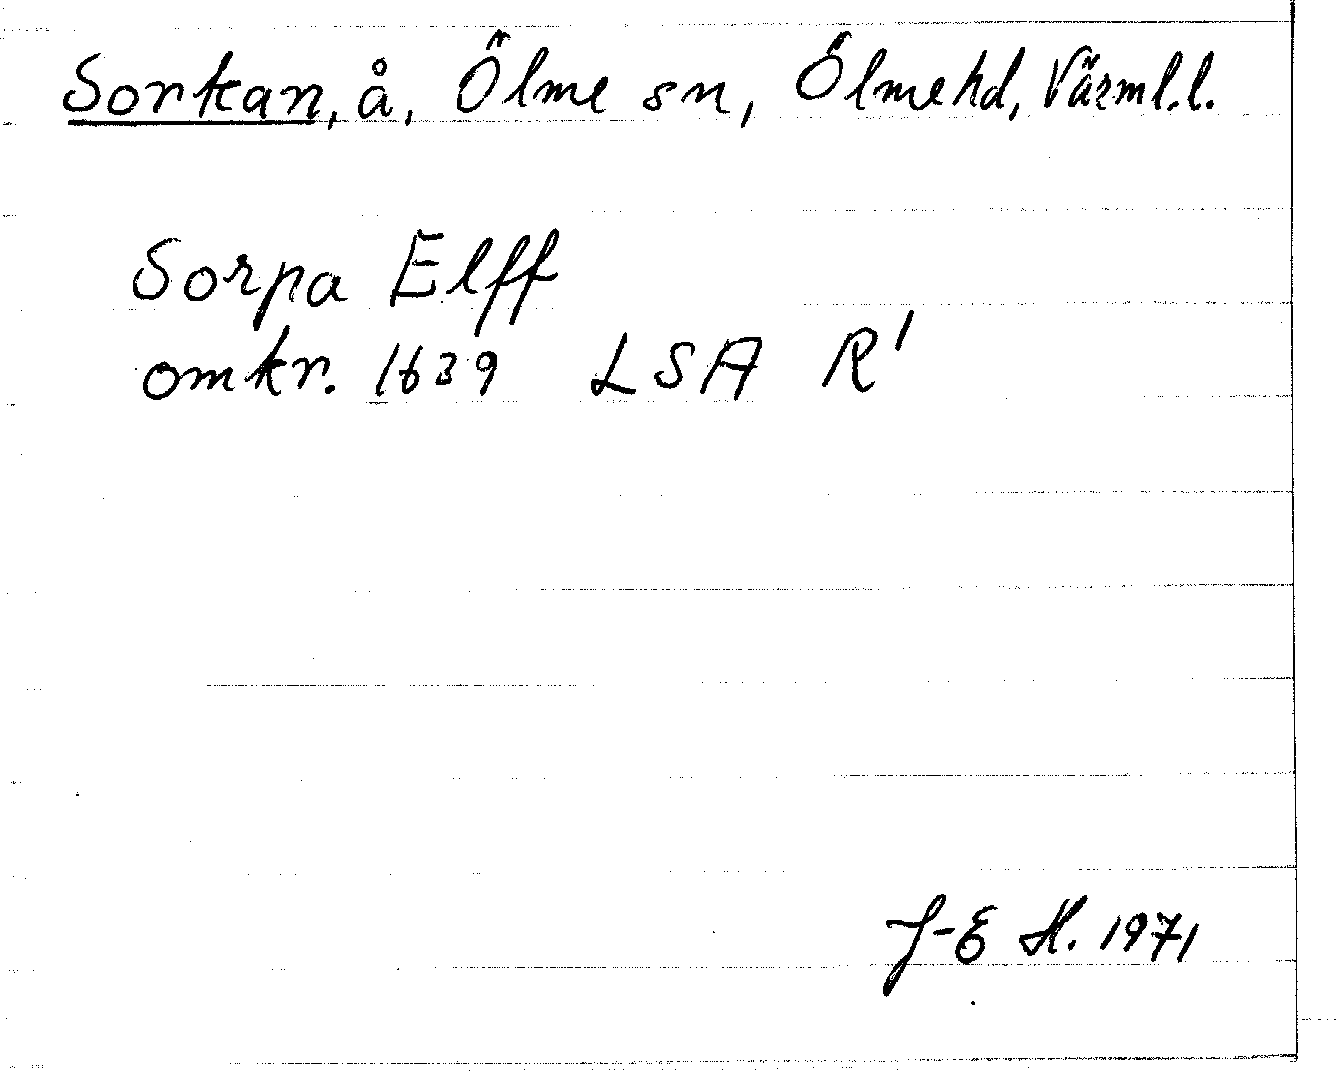 Sorkan, å, Ölme sn, Ölme hd, Värml.l.
Sorpa Elff
omkr. 1639 LSA R1
J-E H. 1971